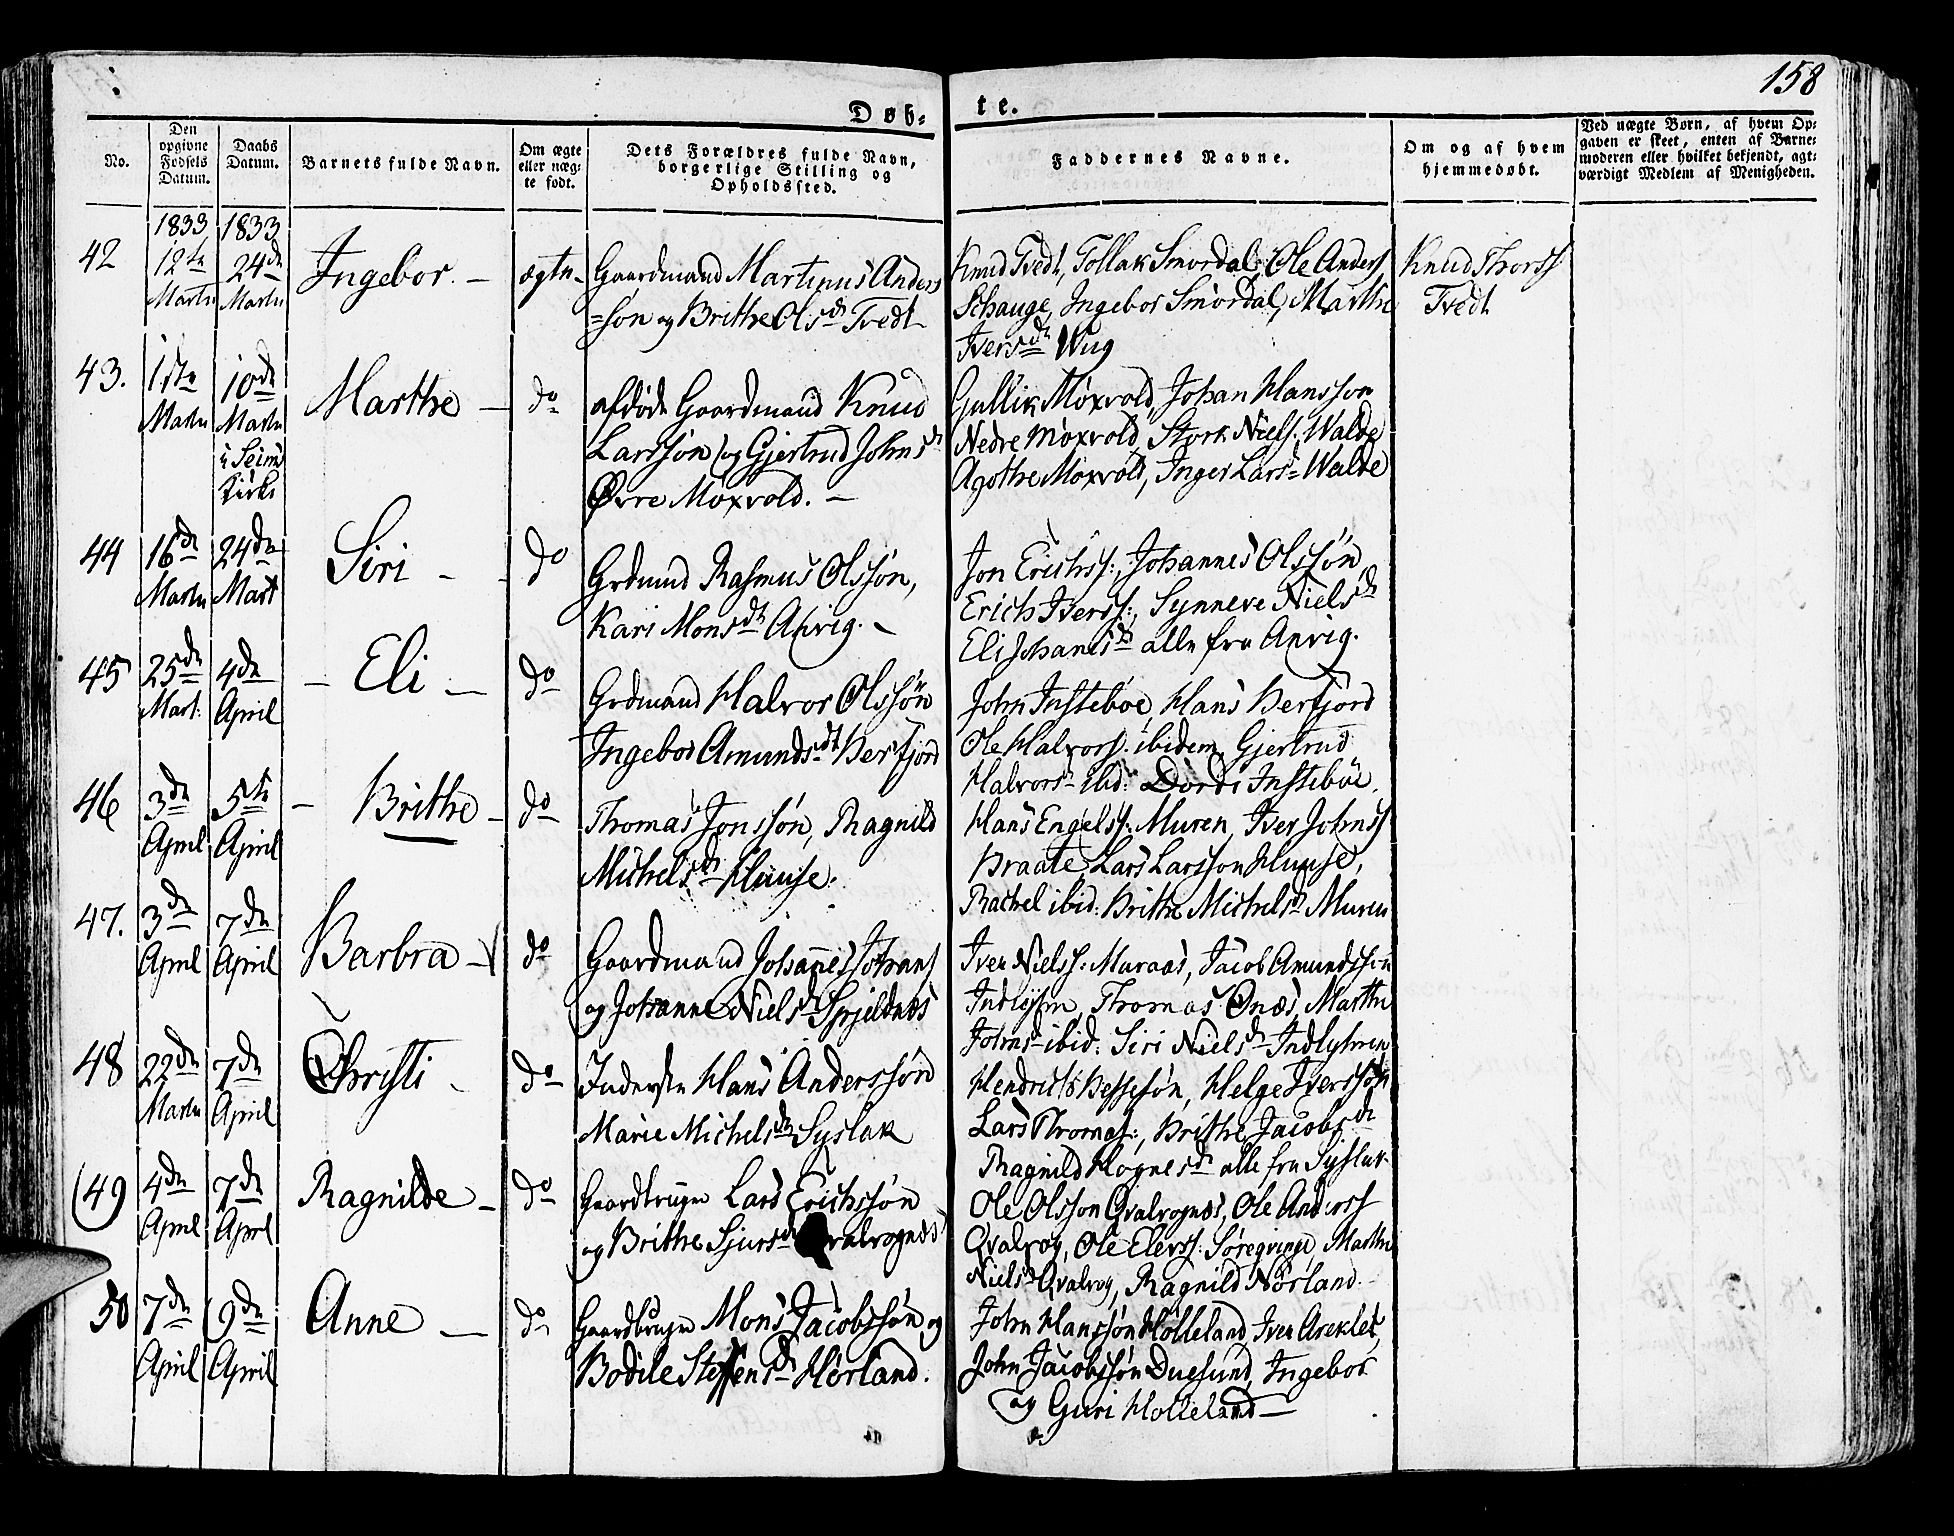 158
Døb-
te.
No.
Den opgivne Fødsels Datum.
Daabs Datum.
Barnets fulde Navn.
Om ægte eller næg- te født.
Dets Forældres fulde Navn, borgerlige Stilling og Opholdssted.
Faddernes Navne.
Om og af hvem hjemmedøbt.
Ved uægte Børn, af hvem Op- gaven er skeet, enten af Barne- moderen eller hvilket bekjendt, agt- værdigt Medlem af Menigheden.
1833 1833
42 12te 24de Ingebor. - ægte-
Martii Martii
Gaardmand Martinus Anders
=søn og Brithe Olsdr Tvedt
Knud Tvedt, Tollak Smørdal, Ole Anderss
Schauge, Ingebor Smørdal, Marthe
Iversdr Wug
Knud Thorss
Tvedt
43. 1ste 10de Marthe - do
Martii Martii
i Seims
Kirke
afdøde Gaardmand Knud
Larssøn og Gjertrud Johnsdr
Øvre Moxvold. -
Gullik Moxvold, Johan Hansson
Nedre Moxvold, Stork Niels: Walde
Agothe Moxvold, Inger Larsd Walde
44 16de 24de Siri - - do
Martii Mart
Grdmnd Rasmus Olssøn,
Kari Monsdr Anvig. -
Jon Erichss:, Johannes Olssøn,
Erich Iverss:, Synneve Nielsdr
Eli Johansdr alle fra Anvig.
45 25de 4de - Eli - do
Mart: April
Grdmand Halvor Olssøn
Ingebor Amundsdr Herfjord
John Instebøe, Hans Herfjord
Ole Halvorss: ibidem, Gjertrud
Halvorsd ibid: Dorde Instebøe,
46 3de 5te - Brithe - do
April April
Thomas Jonssøn, Ragnild
Michelsdr Huuse.
Hans Engelss: Muren, Iver Johnss
Braate, Lars Larsson Huuse,
Rachel ibid: Brithe Michelsd Muren
47. 3de 7de Barbra - do
April April
Gaardmand Johanes Johans
og Johanne Nielsdr Spjeldnæs
Iver Nielss: Muraas, Jacob Amundssøn
Thomas Qnæs, Marthe
Johnsd ibid: Siri Nielsdr
48 22de 7de Christi - do
Martii April
Inderste Hans Anderssøn
Marie Michelsdr Syslak
Hendrich Hessesøn, Helge Iverssøn
Lars Thomass:, Brithe Jacobsdr
Ragnild Hognesdr alle fra Syslak
49 4de 7de Ragnilde - do
April April
Gaardbruger Lars Erichssøn
og Brithe Sjursdr Qvalvognæs
Ole Olsson Qvalvognæs, Ole Anderss
Qvalvog, Ole Elerss: Søreqvinge, Marthe
Nielsd Qvalvog, Ragnild Nørland.-
50 7de 9de Anne - do
April April
Gaardbruger Mons Jacobssøn og
Bodile Steffensdr Hørland.
John Hanssøn Holleland, Iver Areklet,
John Jacobssøn Duesund, Ingebor
og Guri Holleland -